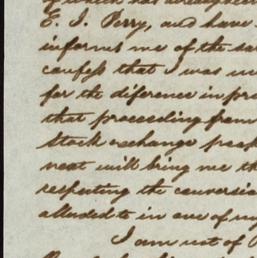 of which has already been
E. I. Perry, and have
informed me of the sa
confess that I was un
for the diference in pr
that proceeding from
stock exchange
next will bring me th
respecting the conversi
alluded to in one of my
I am not of